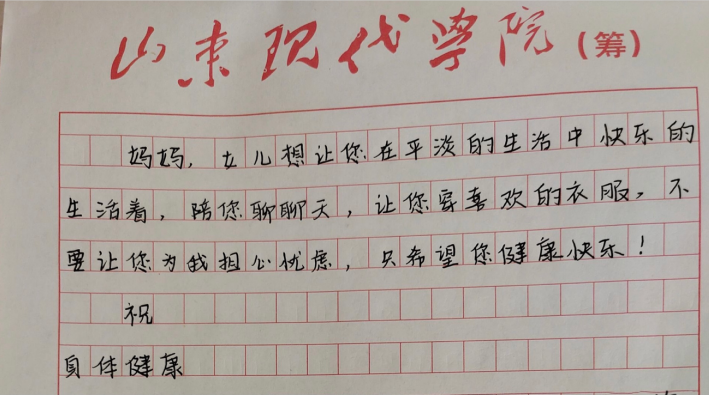 山东现代学院(筹)
妈妈，女儿想让您在平淡的生活中快乐的
生活着，陪您聊聊天，让您穿喜欢的衣服，不
要让您为我担心忧虑，只希望您健康快乐！
祝
身体健康